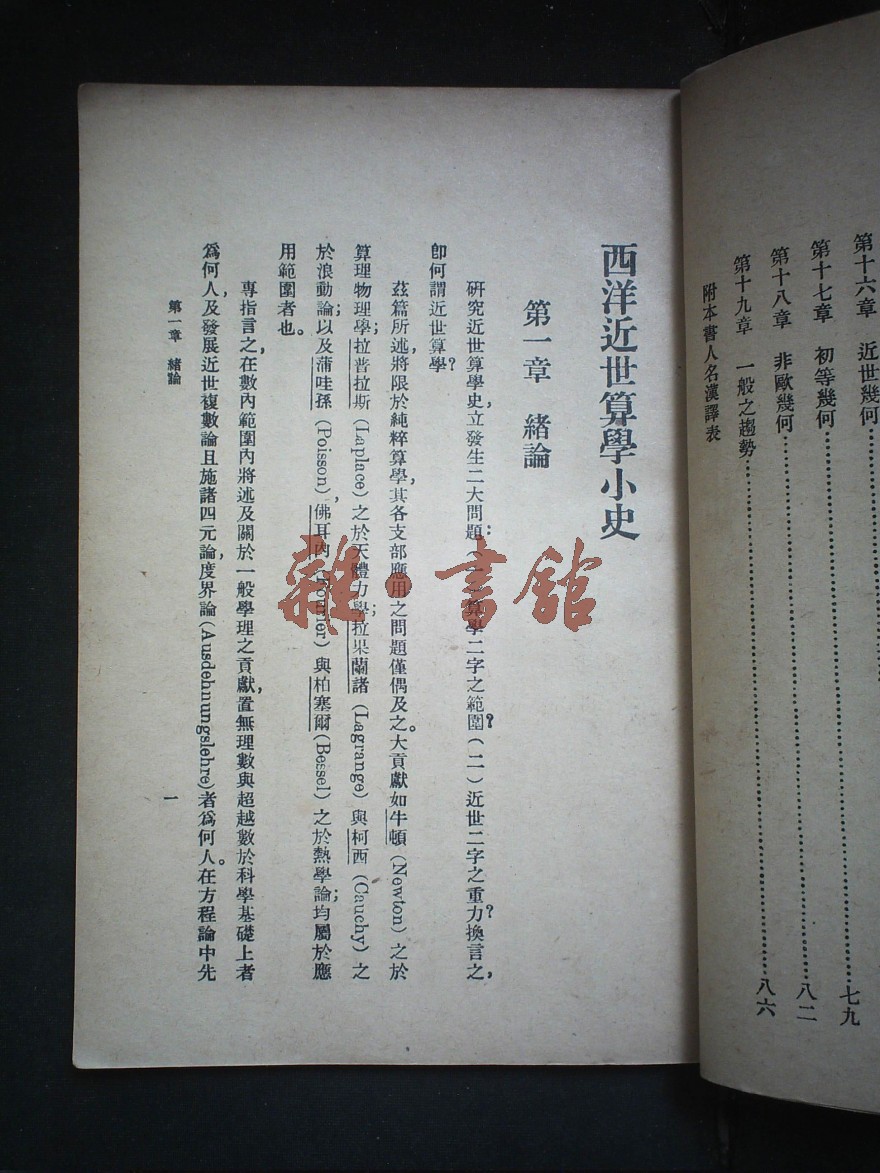 第十六章　近世幾何……………七九
第十七章　初等幾何……………七九
第十八章　非歐幾何……………八二
第十九章　一般之趨勢……………八六
附本書人名漢譯表
西洋近世算學小史
第一章　緒論
研究近世算學史，立發生二大問題：（一）算學二字之範圍？（二）近世二字之重力？換言之，
即何謂近世算學？
茲篇所述，將限於純粹算學，其各支部應用之問題僅偶及之。大貢獻如牛頓（Newton）之於
算理物理學；拉普拉斯（Laplace）之於天體力學；拉果蘭諸（Lagrange）與柯西（Cauchy）之
於浪動論；以及蒲哇孫（Poisson），佛耳內（Fourier）與柏塞爾（Bessel）之於熱學論；均屬於應
用範圍者也。
專指言之，在數內範圍內將述及關於一般學理之貢獻，置無理數與超越數於科學基礎上者
爲何人，及發展近世複數論且施諸四元論，度界論（Ausdehnungslehre）者爲何人。在方程論中先
第一章　緒論
一
雜·書館